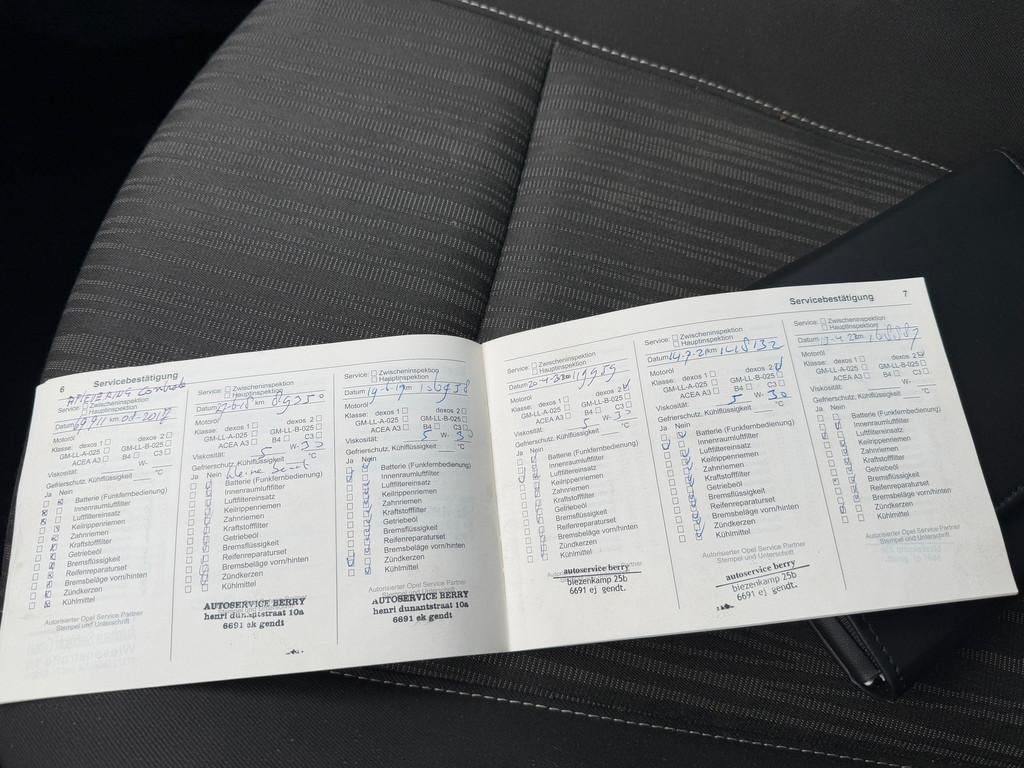 6
Servicebestätigung
Service: Zwischeninspektion
Hauptinspektion
Datum 69911 km
Motoröl
Klasse: dexos 1 dexos 2
GM-LL-A-025 GM-LL-B-025
ACEA A3 B4 C3
Viskosität: W-
Gefrierschutz, Kühlflüssigkeit °C
Ja Nein
Batterie (Funkfernbedienung)
Innenraumluftfilter
Luftfiltereinsatz
Keilrippenriemen
Zahnriemen
Kraftstofffilter
Getriebeöl
Bremsflüssigkeit
Reifenreparaturset
Bremsbeläge vorn/hinten
Zündkerzen
Kühlmittel
Autorisierter Opel Service Partner
Stempel und Unterschrift
Service: Zwischeninspektion
Hauptinspektion
Datum km
Motoröl
Klasse: dexos 1 dexos 2
GM-LL-A-025 GM-LL-B-025
ACEA A3 B4 C3
Viskosität: 5 W- 30
Gefrierschutz, Kühlflüssigkeit °C
Ja Nein
Batterie (Funkfernbedienung)
Innenraumluftfilter
Luftfiltereinsatz
Keilrippenriemen
Zahnriemen
Kraftstofffilter
Getriebeöl
Bremsflüssigkeit
Reifenreparaturset
Bremsbeläge vorn/hinten
Zündkerzen
Kühlmittel
AUTOSERVICE BERRY
henri dunantstraat 10a
6691 ek gendt
Service: Zwischeninspektion
Hauptinspektion
Datum km
Motoröl
Klasse: dexos 1 dexos 2
GM-LL-A-025 GM-LL-B-025
ACEA A3 B4 C3
Viskosität: 5 W- 30
Gefrierschutz, Kühlflüssigkeit °C
Ja Nein
Batterie (Funkfernbedienung)
Innenraumluftfilter
Luftfiltereinsatz
Keilrippenriemen
Zahnriemen
Kraftstofffilter
Getriebeöl
Bremsflüssigkeit
Reifenreparaturset
Bremsbeläge vorn/hinten
Zündkerzen
Kühlmittel
AUTOSERVICE BERRY
henri dunantstraat 10a
6691 ek gendt
Servicebestätigung
7
Service: Zwischeninspektion
Hauptinspektion
Datum
Motoröl
Klasse: dexos 1 dexos 2
GM-LL-A-025 GM-LL-B-025
ACEA A3 B4 C3
Viskosität: 5 W- 30
Gefrierschutz, Kühlflüssigkeit °C
Ja Nein
Batterie (Funkfernbedienung)
Innenraumluftfilter
Luftfiltereinsatz
Keilrippenriemen
Zahnriemen
Kraftstofffilter
Getriebeöl
Bremsflüssigkeit
Reifenreparaturset
Bremsbeläge vorn/hinten
Zündkerzen
Kühlmittel
autoservice berry
biezenkamp 25b
6691 ej gendt.
Service: Zwischeninspektion
Hauptinspektion
Datum 14-7-21 km 148132
Motoröl
Klasse: dexos 1 dexos 2
GM-LL-A-025 GM-LL-B-025
ACEA A3 B4 C3
Viskosität: 5 W- 30
Gefrierschutz, Kühlflüssigkeit °C
Ja Nein
Batterie (Funkfernbedienung)
Innenraumluftfilter
Luftfiltereinsatz
Keilrippenriemen
Zahnriemen
Kraftstofffilter
Getriebeöl
Bremsflüssigkeit
Reifenreparaturset
Bremsbeläge vorn/hinten
Zündkerzen
Kühlmittel
Autorisierter Opel Service Partner
Stempel und Unterschrift
autoservice berry
biezenkamp 25b
6691 ej gendt.
Service: Zwischeninspektion
Hauptinspektion
Datum km
Motoröl
Klasse: dexos 1 dexos 2
GM-LL-A-025 GM-LL-B-025
ACEA A3 B4 C3
Viskosität: W-
Gefrierschutz, Kühlflüssigkeit °C
Ja Nein
Batterie (Funkfernbedienung)
Innenraumluftfilter
Luftfiltereinsatz
Keilrippenriemen
Zahnriemen
Kraftstofffilter
Getriebeöl
Bremsflüssigkeit
Reifenreparaturset
Bremsbeläge vorn/hinten
Zündkerzen
Kühlmittel
Autorisierter Opel Service Partner
Stempel und Unterschrift